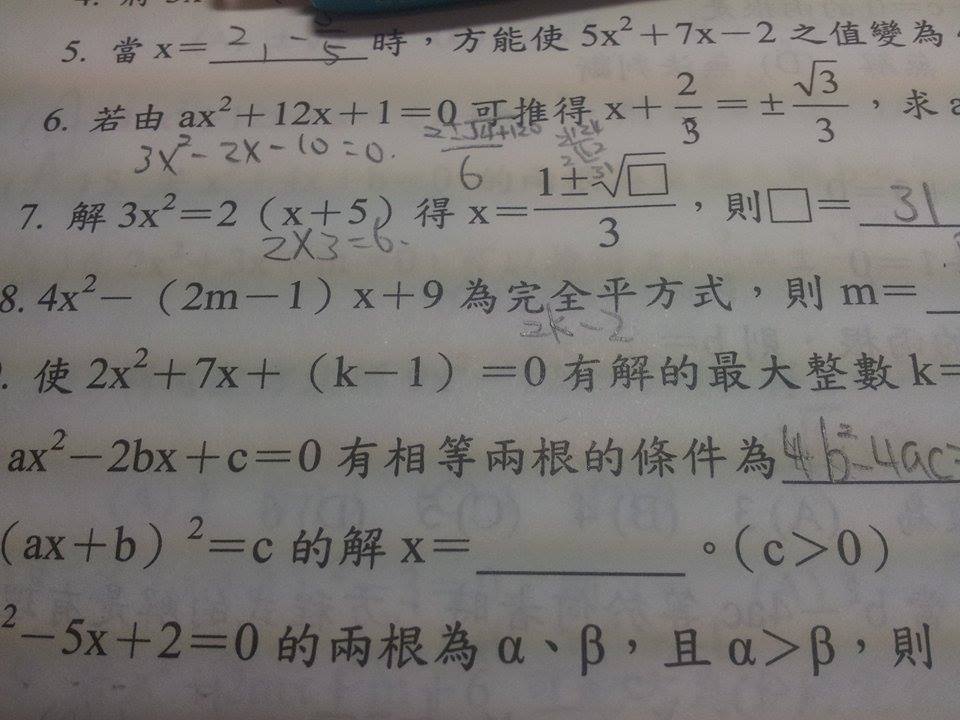 5. 當 x= 2, -  5 時，方能使 5x²+7x-2 之值變為
6. 若由 ax²+12x+1=0 可推得 x+2/3=±√3/3，求 a
3x²-2x-10=0.
6
7. 解 3x²=2（x+5）得 x=1±√□/3，則□= 31
2×3=6.
8. 4x²-（2m-1）x+9 為完全平方式，則 m=
2k-2
. 使 2x²+7x+（k-1）=0 有解的最大整數 k=
ax²-2bx+c=0 有相等兩根的條件為 4b²-4ac=
(ax+b)²=c 的解 x=________。(c>0)
²-5x+2=0 的兩根為 α、β，且 α>β，則